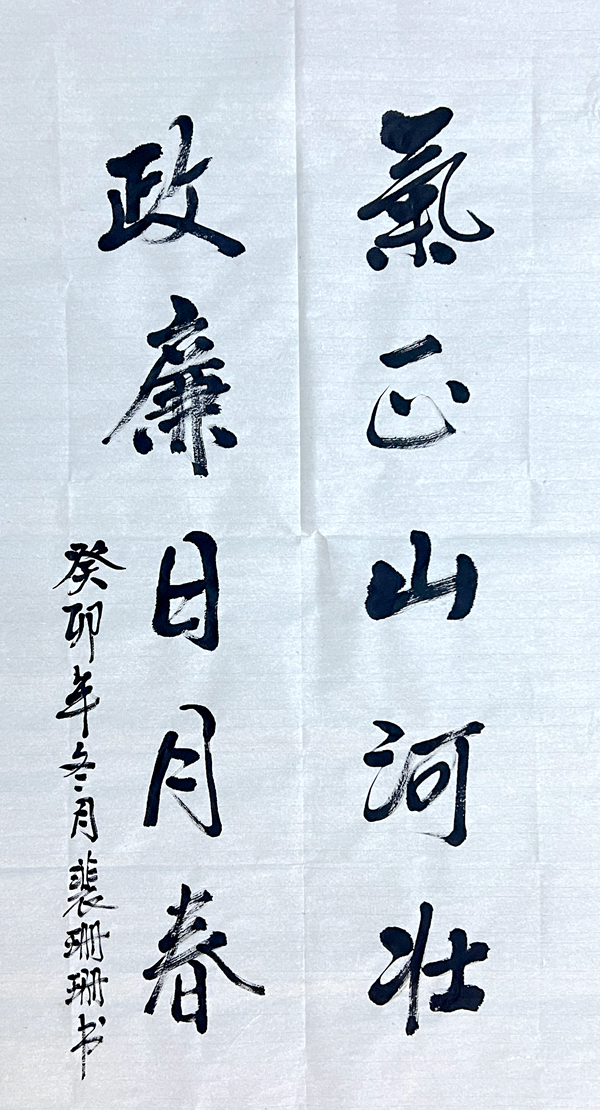 氣正山河壯
政廉日月春
癸卯年冬月裴珊珊书